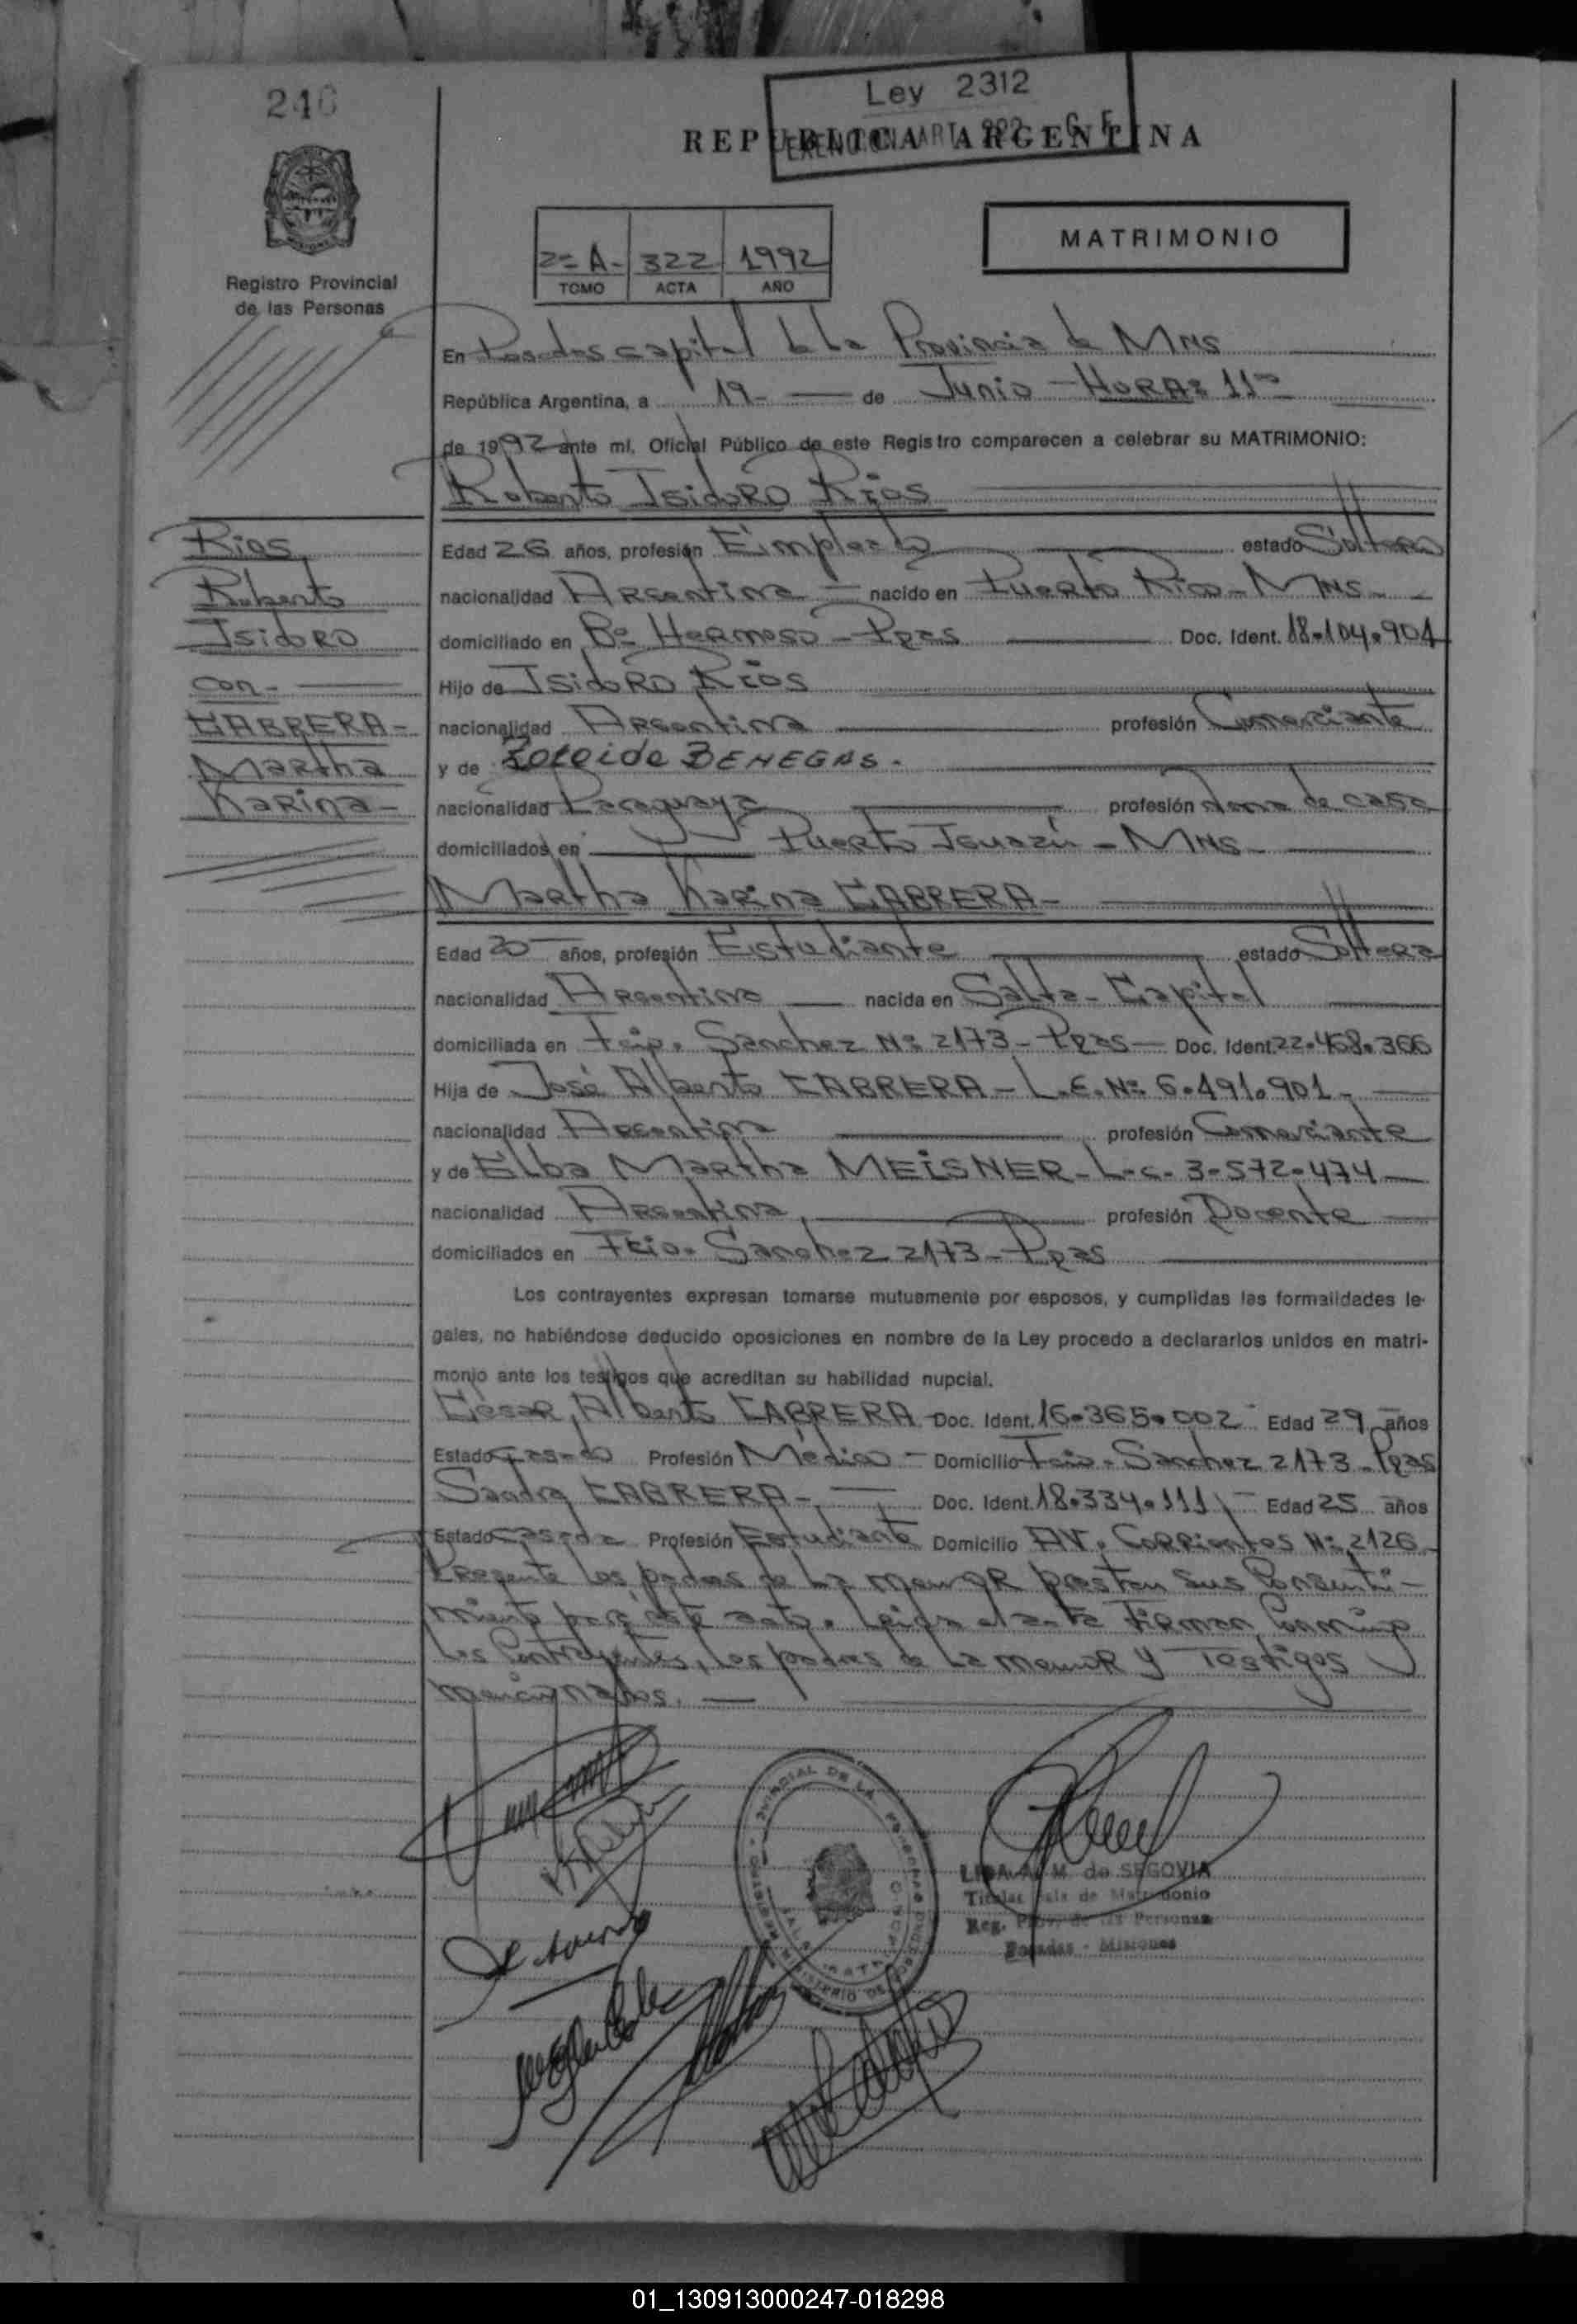 246
Ley 2312
EXENCION ART
REPUBLICA ARGENTINA
MATRIMONIO
2º A- 322 1992
TOMO ACTA AÑO
Registro Provincial
de las Personas
En Posadas capital de la Provincia de Mnes
República Argentina, a 19- de Junio - HORA: 11ºº
de 1992 ante mí, Oficial Público de este Registro comparecen a celebrar su MATRIMONIO:
Roberto Isidoro Rios
Rios
Roberto
Isidoro
con-
CABRERA-
Martha
Karina-
Edad 26 años, profesión Empleado estado Soltero
nacionalidad Argentina nacido en Puerto Rico - Mnes -
domiciliado en Bº Hermoso - Pdas Doc. Ident. 18.104.901
Hijo de Isidoro Rios
nacionalidad Argentina profesión Comerciante
y de Zoleida BENEGAS.
nacionalidad Paraguaya profesión Ama de casa
domiciliados en Puerto Iguazú - Mnes-
Martha Karina CABRERA-
Edad 20 años, profesión Estudiante estado Soltera
nacionalidad Argentina nacida en Salta - Capital
domiciliada en Fcio. Sanchez Nº 2173 - Pdas - Doc. Ident. 22.468.366
Hija de José Alberto CABRERA - L.E. Nº 6.491.901-
nacionalidad Argentina profesión Comerciante
y de Elba Martha MEISNER - L.C. 3.572.474
nacionalidad Argentina, profesión Docente
domiciliados en Fcio. Sanchez 2173 - Pdas
Los contrayentes expresan tomarse mutuamente por esposos, y cumplidas las formalidades le-
gales, no habiéndose deducido oposiciones en nombre de la Ley procedo a declararlos unidos en matri-
monio ante los testigos que acreditan su habilidad nupcial.
Cesar Alberto CABRERA Doc. Ident. 16.365.002 Edad 29 años
Estado casado Profesión Médico - Domicilio Fcio. Sanchez 2173 - Pdas
Sandra CABRERA- Doc. Ident. 18.334.111 Edad 25 años
Estado casada Profesión Estudiante Domicilio AV. Corrientes Nº 2126
Presente los padres de la menor prestan sus Consenti-
miento para este acto. Leida el acta Firman Conmigo
los Contrayentes, los padres de la menor y Testigos
mencionados.
LIDA A. M. de SEGOVIA
Titular Sala de Matrimonio
Reg. Prov. de las Personas
Posadas - Misiones
01_130913000247-018298